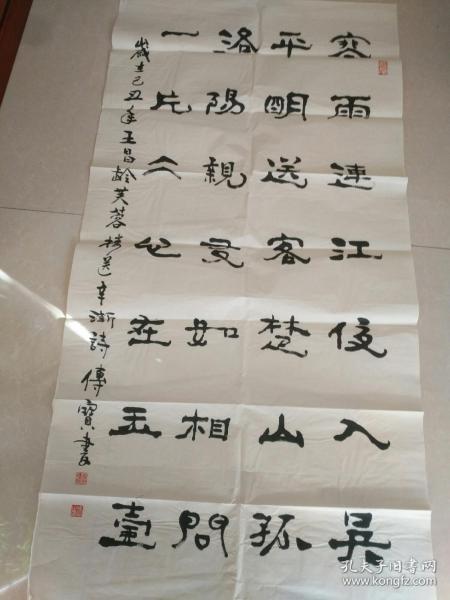 寒雨連江夜入吳
平明送客楚山孤
洛陽親友如相問
一片冰心在玉壺
歲在己丑年王昌齡芙蓉樓送辛漸詩 傳寶書
孔夫子旧书网
www.kongfz.com